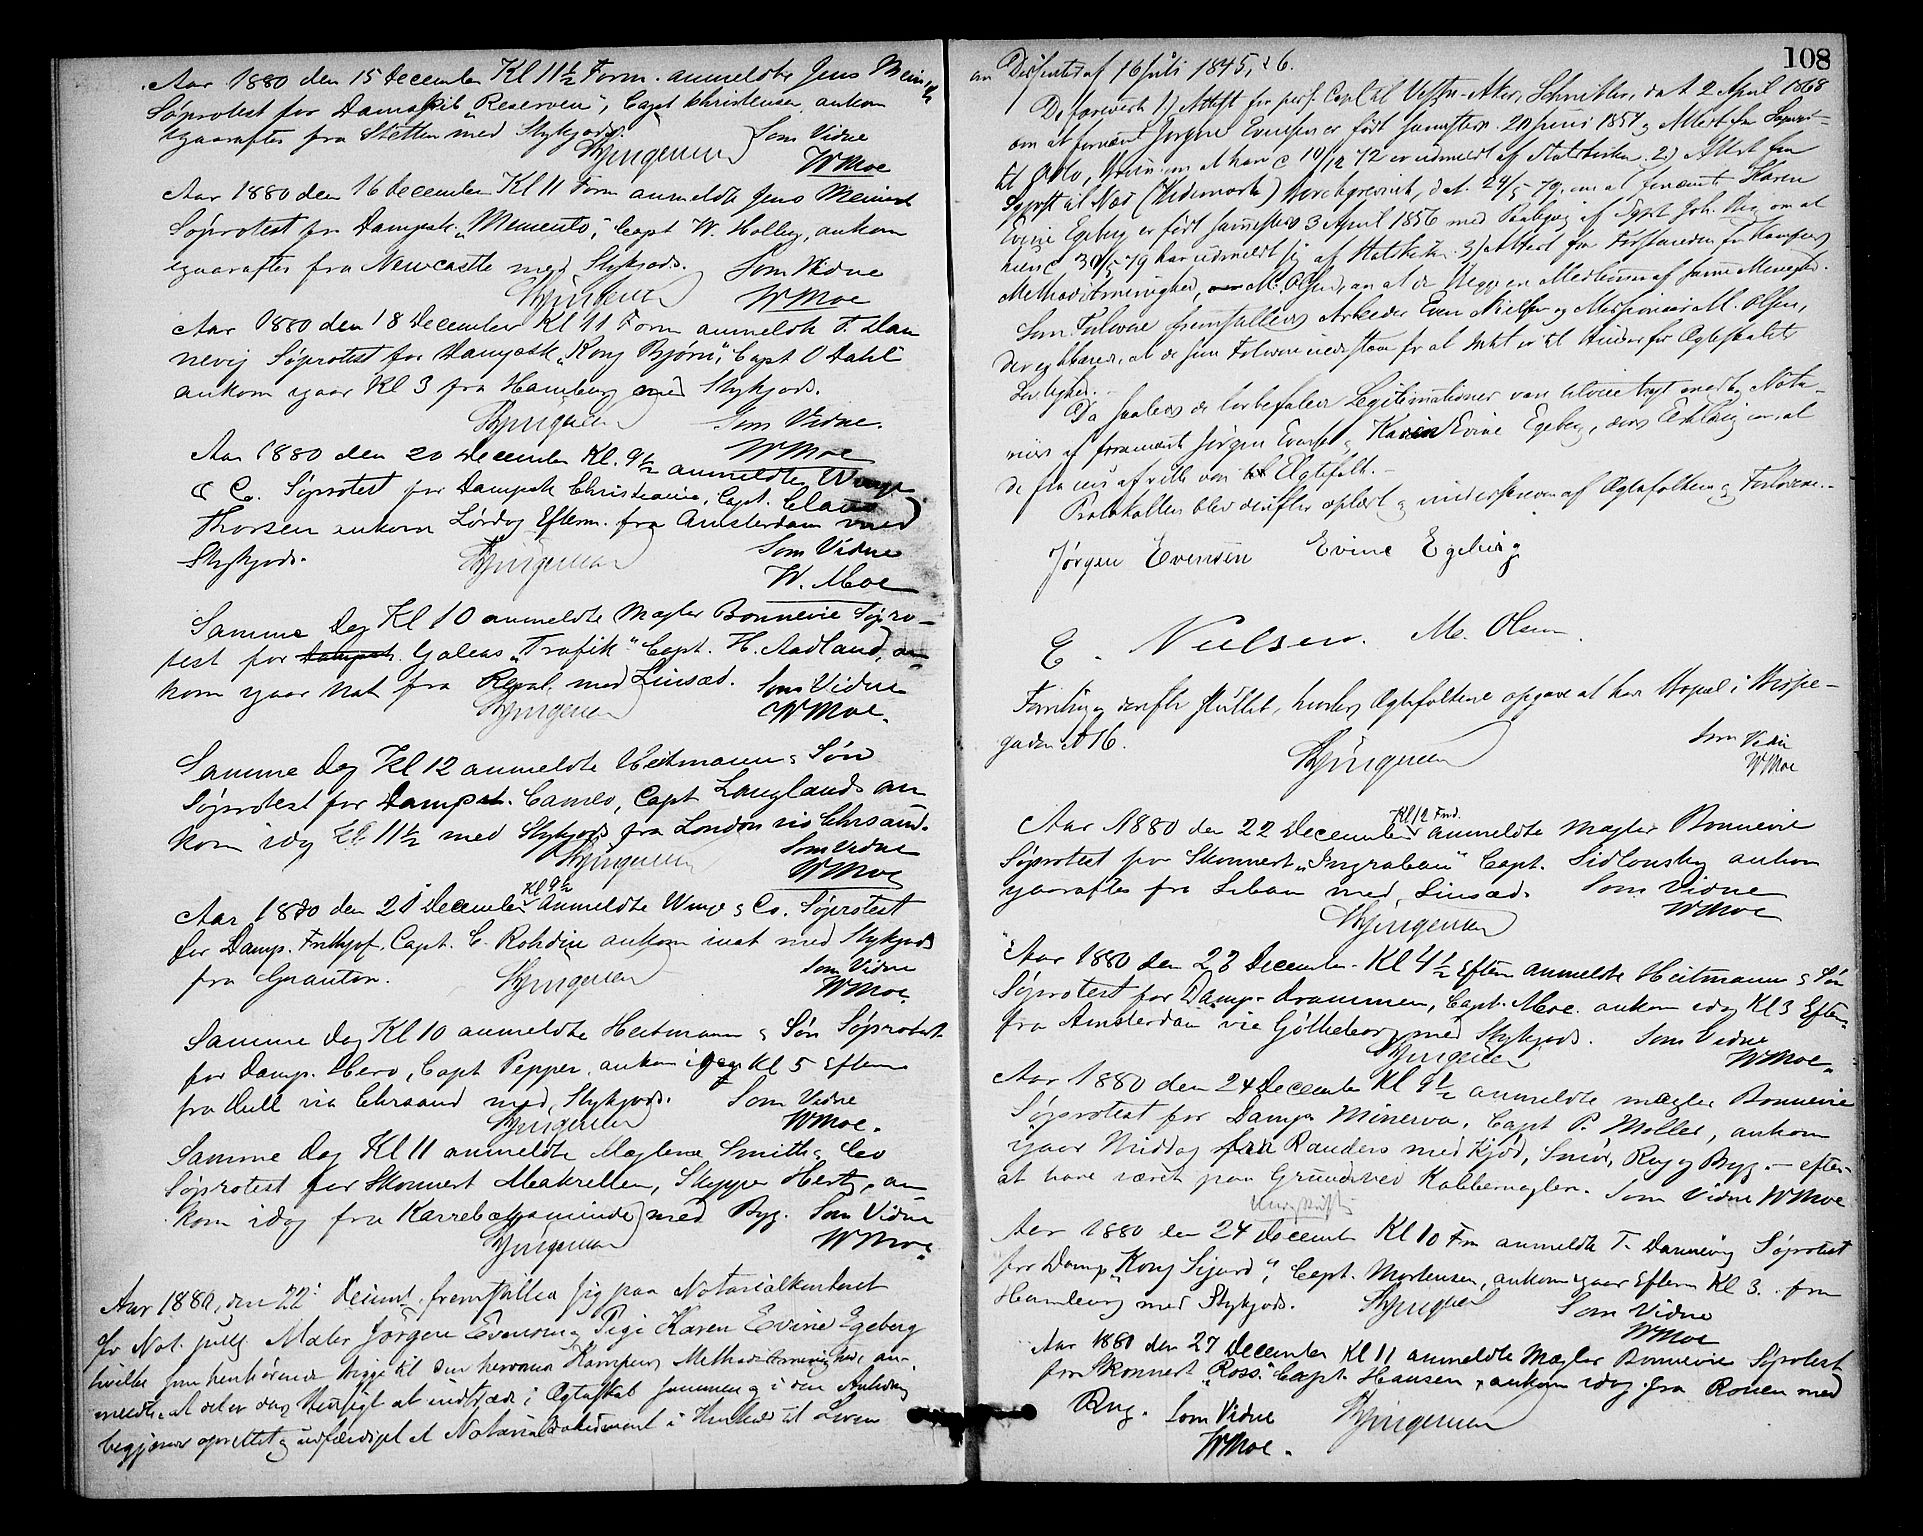 Aar 1880 den 15 December Kl 11½ Form. anmeldte Jens Meinich
Søprotest for Dampskib „Reserven“, Capt Christensen, ankom
igaaraftes fra Stettin med Stykgods.
Som Vidne
WMoe
Aar 1880 den 16 December Kl 11 Form anmeldte Jens Meinich
Søprotest for Dampsk. „Memento“, Capt W. Holberg, ankom
igaaraftes fra Newcastle med Stykgods. Som Vidne
WMoe
Aar 1880 den 18 December Kl 11 Form anmeldte T. Dan
nevig Søprotest for Dampsk „Kong Bjørn“, Capt O Dahl
ankom igaar Kl 3 fra Hamburg med Stykgods.
Som Vidne.
WMoe
Aar 1880 den 20 December Kl. 9½ anmeldte Winge
& Co. Søprotest for Dampsk Christiania, Capt. Claus
Thorsen ankom Lørdag Efterm. fra Amsterdam med
Stykgods. Som Vidne
W. Moe
Samme Dag Kl 10 anmeldte Mægler Bonnevie Søpro-
test for Dampsk. Galeas „Trafik“ Capt. H. Aadland, an-
kom igaar Nat fra Reval med Linsæd. Som Vidne
WMoe.
Samme Dag Kl 12 anmeldte Heitmann & Søn
Søprotest for Dampsk. Cameo, Capt Langlands an
kom idag Kl 11½ med Stykgods fra London via Chrsand.
Som Vidne
WMoe
Kl 9½
Aar 1880 den 21 December anmeldte Winge & Co. Søprotest
for Damp. Frithjof, Capt. C. Rohdin ankom inat med Stykgods
fra Granton. Som Vidne
WMoe.
Samme Dag Kl 10 anmeldte Heitmann & Søn Søprotest
for Damp. Hero, Capt Pepper, ankom igaar Kl 5 Efterm
fra Hull via Chrsand med Stykgods. Som Vidne
WMoe.
Samme Dag Kl 11 anmeldte Mæglerne Smith & Co
Søprotest for Skonnert Makrellen, Skipper Hertz, an
kom idag fra Karrebæksminde med Byg. Som Vidne
WMoe.
Aar 1880, den 22de Decemb. fremstilled sig paa Notarialkontoret
for Not. publ. Maler Jörgen Evensen og Pige Karen Evine Egeberg
hvilke som henhørende begge til den herværende Kampens Methodistmenighed, an-
meldte, at det er deres Hensigt at indtræde i Ægteskab sammen og i den Anledning
begjærer oprettet og udfærdiget et Notarialdokument i Henhold til Loven
108
om Dissentere af 16 Juli 1845, § 6.
De foreviste 1) Attest fra pers. Cap. til Vestre Aker, Schnitler, dat 2 April 1868
om at fornævnte Jørgen Evensen er født sammesteds 20 Juni 1857 og Attest fra Sognepr-
til Oslo, om at han c 10/12 72 er udmeldt af Statskirken. 2) Attest fra
Sogneprst til Næs (Hedemarken) Borchgrevink, dat. 24/5 79, om at fornævnte Karen
Evine Egeberg er født sammesteds 3 April 1856 med Paategning af Sgpr. om at
hun c 30/5 79 har udmeldt sig af Statskirken. 3) Attest fra Forstanderen for Kampens
Methodistmenighed, M. Olsen, om at de begge er Medlemmer af samme Menighed.
Som Forlovere fremstilledes Arbeider Even Nielsen og Missionær M. Olsen,
der erklærede, at de som Forlovere indestaae for at Intet er til Hinder for Ægteskabets
Lovlighed.
Da saaledes de lovbefalede Legitimationer var tilveiebragt modtog Nota-
rius af fornævnte Jørgen Evensen og Karen Evine Egeberg, deres Erklæring om, at
de fra nu af ville være Ægtefolk.-
Protokollen blev derefter oplæst og underskreven af Ægtefolkene og Forloverne.-
Jørgen Evensen Evine Egeberg
E. Nielsen. M. Olsen.
Forretningen derefter sluttet, hvorhos Ægtefolkene opgave at have Bopæl i Bispe-
gaden № 16. Som Vidne
WMoe
Kl 12 Fmd.
Aar 1880 den 22 December anmeldte Mægler Bonnevie
Søprotest for Skonnert „Ingraban“ Capt. Sidlonsky ankom
igaaraftes fra Libau med Linsæd. Som Vidne
WMoe
Aar 1880 den 23 December Kl 4½ Eftm anmeldte Heitmann & Søn
Søprotest for Damp. Drammen, Capt. Moe. ankom idag Kl 3 Efterm.
fra Amsterdam via Gøtheborg med Stykgods. Som Vidne
WMoe.
Aar 1880 den 24 December Kl 9½ anmeldte Mægler Bonnevie
Søprotest for Damp Minerva, Capt P. Møller, ankom
igaar Middag fra Randers med Kjød, Smør, Rug og Byg.- efter
at have været paa Grund ved Kobbernaglen. Som Vidne WMoe
Aar 1880 den 24 December Kl 10 Fm anmeldte T. Dannevig Søprotest
for Damp „Kong Sigurd“, Capt. Mortensen, ankom igaar Efterm Kl 3. fra
Hamburg med Stykgods. Som Vidne
WMoe
Aar 1880 den 27 December Kl 11 anmeldte Mægler Bonnevie Søprotest
for Skonnert „Ross“ Capt. Hansen, ankom idag fra Rouen med
Rug. Som Vidne
WMoe.